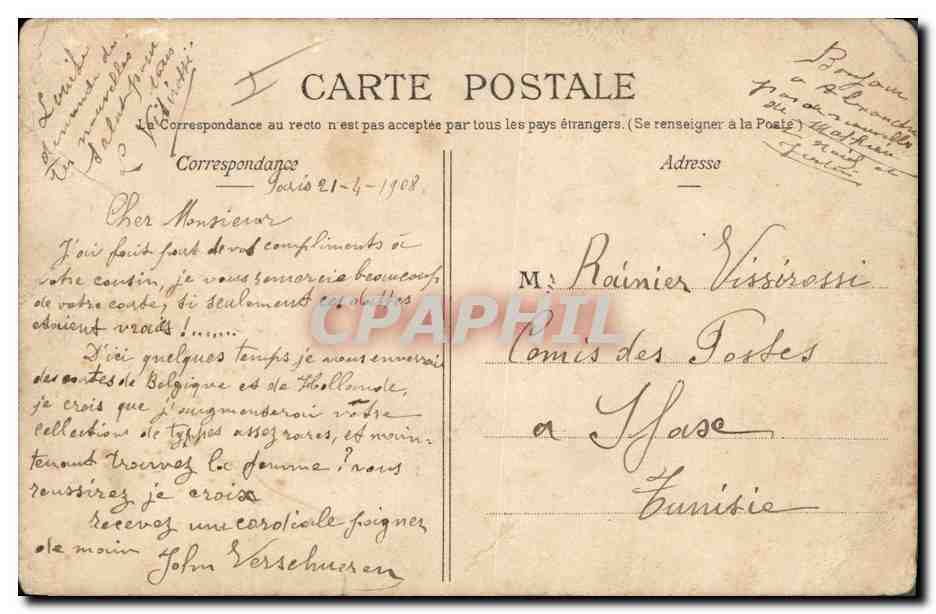 Louise
demande de
tes nouvelles
Salut pour
tous
L Vissirossi
CARTE POSTALE
La Correspondance au recto n'est pas acceptée par tous les pays étrangers. (Se renseigner à la Poste)
Bonjour
a
pas de nouvelles
de Mathieu
Correspondance
Paris 21-4-1908
Cher Monsieur
J'ai fait part de vos compliments à
votre cousin, je vous remercie beaucoup
de votre carte, si seulement ces dattes
étaient vrais!........
D'ici quelques temps je vous enverrai
des cartes de Belgique et de Hollande,
je crois que j'augmenterai vôtre
collection de types assez rares, et main-
tenant trouvez la femme? vous
reussirez je crois
recevez une cordiale poignee
de main John Verschueren
Adresse
Mr Rainier Vissirossi
Comis des Postes
a Sfax
Tunisie
CPAPHIL